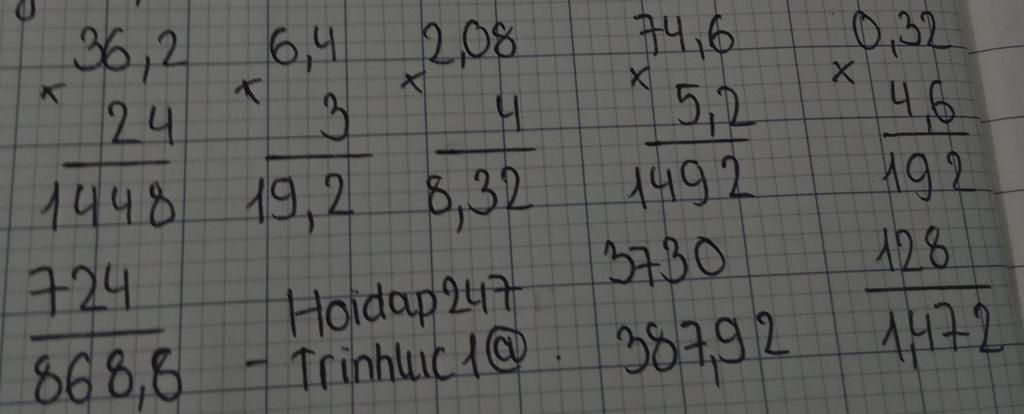 36,2 6,4 2,08 74,6 0,32
× × × × ×
24 3 4 5,2 4,6
1448 19,2 8,32 1492 192
724 3730 128
868,8 Hoidap247 387,92 1,472
- Trinhluc1@.